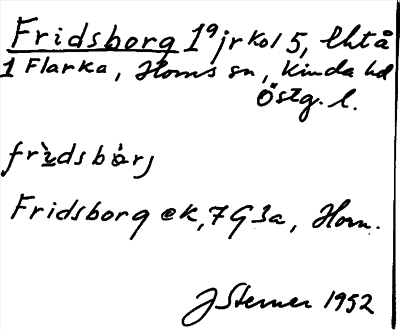 Fridsborg 19 jrkol 5, lhtå
1 Flarka, Horns sn, Kinda hd
Östg. l.
frìdsbȯrj
Fridsborg ek, 7G3a, Horn.
J Sterner 1952